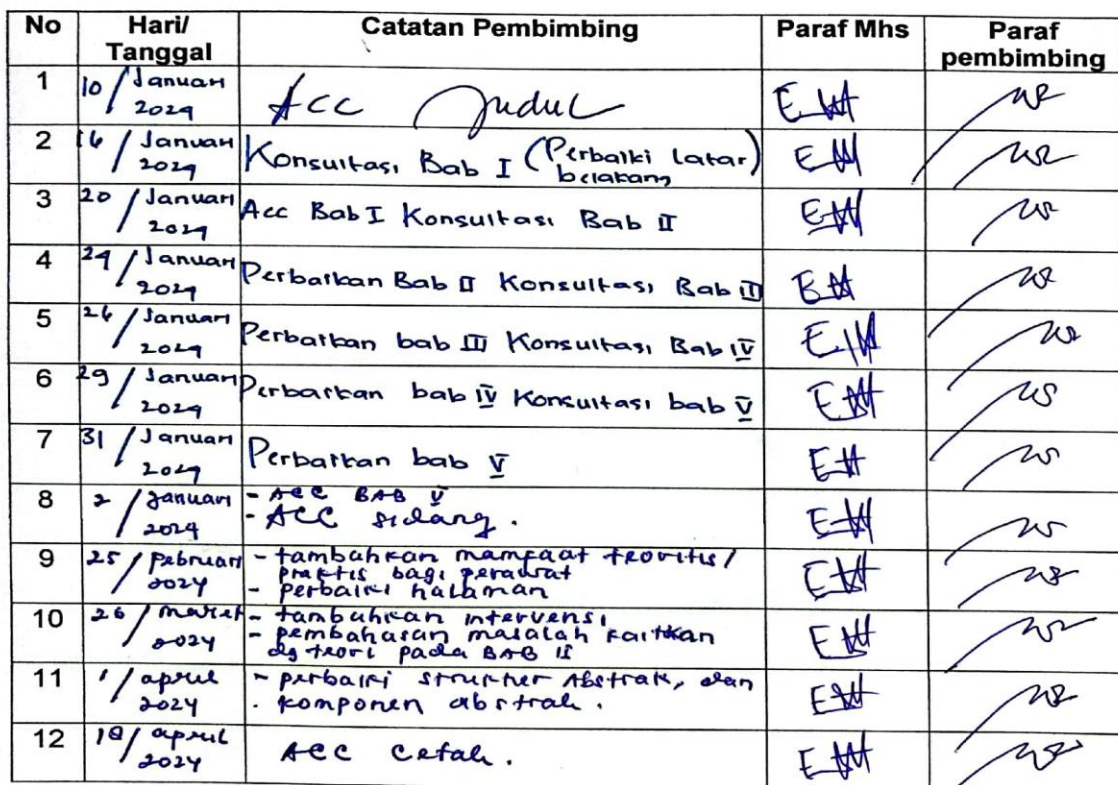 No Hari/ Tanggal Catatan Pembimbing Paraf Mhs Paraf pembimbing
1 10/Januari 2024 Acc Judul
2 16/Januari 2024 Konsultasi Bab I (Perbaiki Latar belakang)
3 20/Januari 2024 Acc Bab I Konsultasi Bab II
4 24/Januari 2024 Perbaikan Bab II Konsultasi Bab III
5 26/Januari 2024 Perbaikan bab III Konsultasi Bab IV
6 29/Januari 2024 Perbaikan bab IV Konsultasi bab V
7 31/Januari 2024 Perbaikan bab V
8 2/Januari 2024 - ACC BAB V
- ACC sidang.
9 25/Februari 2024 - tambahkan mamfaat teoritis/
praktis bagi perawat
- perbaiki halaman
10 26/maret 2024 - tambahkan intervensi
- pembahasan masalah kaitkan
dg teori pada BAB II
11 1/april 2024 - perbaiki struktur Abstrak, dan
. komponen abstrak.
12 /april 2024 ACC Cetak.